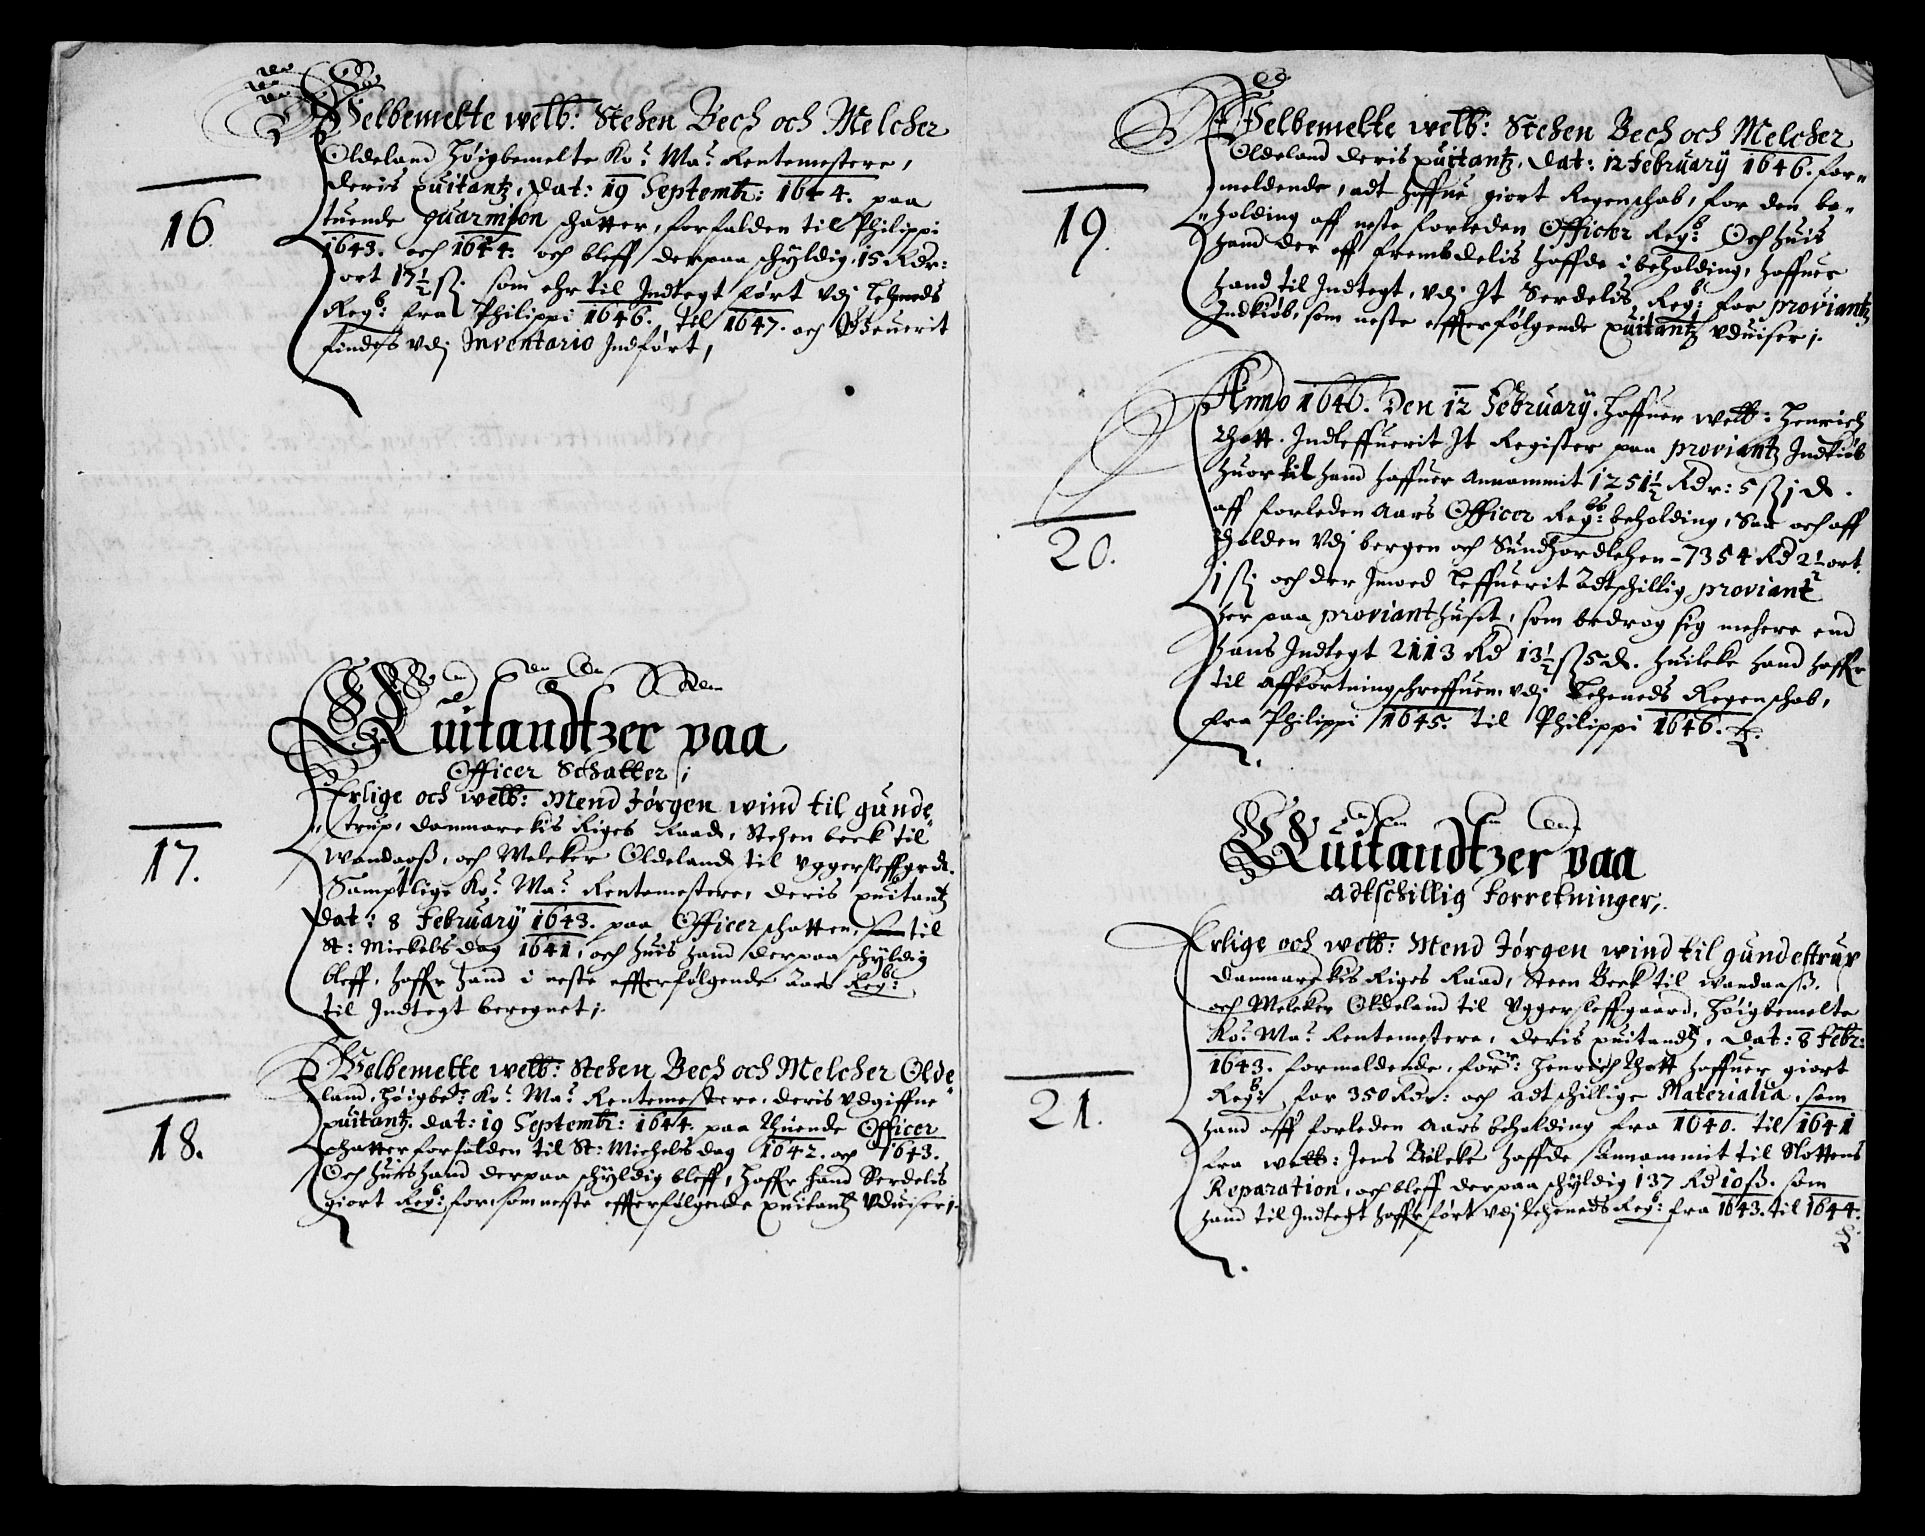 Velbemelte welb: Stehen Bech och Melcher
Oldeland Høigbemelte Ko: Ma: Rentemestere,
deris quitantz, dat: 19 Septemb: 1644. paa
16. tuende guarnison schatter, forfalden til Philippi
1643. och 1644. och bleff derpaa schyldig, 15 Rdr:
ort 17½ ß; som ehr til Indtegt ført vdj Lehnneds
Reg:b fra Philippi 1646. til 1647. och
findis vdj Inventario Indført,
Quitandtzer paa
Officer Schatter,
Erlige och welb: Mend Jørgen wind til gunde,
17. trup, danmarckis Riges Raad, Stehen beck til
wandaaß, och Melcker Oldeland til Vggersleffgrd.
Samptlige Ko: Ma: Rentemestere, deris quitantz
dat: 8 February 1643. paa Officer schatten, til
St: Mickels dag 1641, och huis hand derpaa schyldig
bleff, haffr hand i neste effterfølgende Aars Reg:b
til Indtegt beregnet,
Velbemelte welb: Stehen Bech och Melcher Olde
18. land, Høigbete Ko: Ma: Rentemestere, deris vdgiffne
quitantz. dat: 19 Septembr: 1644. paa thuende Officer
schatter forfalden til St: Michels dag 1642. och 1643.
Och huis hand derpaa schyldig bleff, haffr hand Serdelis
giort Reg:b for, som neste effterfølgende quitantz vduiser,
Velbemelte welb: Stehen Bech och Melcher
Oldeland deris quitantz, dat: 12 February 1646. for=
meldende, adt haffue giort Regenschab, for den be=
19. holding aff neste forleden Officer Reg:b Och huis
hand der aff frembdelis haffde i beholding, haffuer
hand til Indtegt, vdj It Serdelis Reg:b for proviantz
Indkiøb, som neste effterfølgende quitantz vduiser,
Anno 1646. Den 12 February, haffuer welb: Henrich
Thott. Indleffuerit It Register paa proviantz Indkiøb
huortil hand haffuer Annammit 1251½ Rdr: 5 ß j d.
aff forleden Aars Officer Reg:b beholding, och aff
20. Tholden vdj bergen och Sundhordlehen - 7354 Rd 2½ ort
j ß; och der Imoed Leffuerit Adtschillig proviant
her paa proviant huset, som bedrog sig mehere end
hans Indtegt 2113 Rd 13½ ß 5 d. huilcke hand haffr
til affkortning vdj Lehnneds Regenschab,
fra Philippi 1645. til Philippi 1646.
Quitandtzer paa
Adtschillig Forretninger,
Erlige och welb: Mend Jørgen wind til gundestrup
danmarckis Riges Raad, Steen Beck til wandaaß.
och Melcker Oldeland til Vggersleffgaard, Høigbemelte
Ko: Ma: Rentemestere, deris quitandtz, dat: 8 Febr:
1643. formeldende, for: Henrich Thott haffuer giort
21. Reg:b for 350 Rdr: och Adtschillige Materialia, som
hand aff forleden Aars beholding fra 1640. til 1641
fra welb: Jens Bilcke haffde Annammit til Slottens
Reparation, och bleff derpaa schyldig 137 Rd 10 ß. som
hand til Indtegt haffr ført vdj Lehneds Reg:b fra 1643. til 1644.